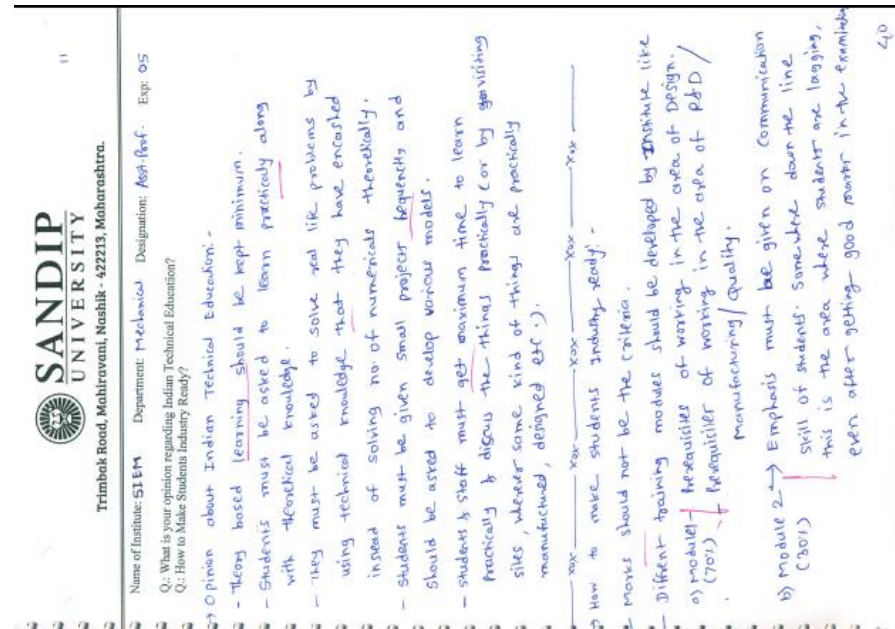 11
SANDIP
UNIVERSITY
Trimbak Road, Mahiravani, Nashik - 422213, Maharashtra.
Name of Institute: SIEM Department: Mechanical Designation: Asst. Prof. Exp: 05
Q.: What is your opinion regarding Indian Technical Education?
Q.: How to Make Students Industry Ready?
→ Opinion about Indian Technical Education:-
- Theory based learning should be kept minimum.
- Students must be asked to learn practically along
with theorotical knowledge.
- They must be asked to solve real life problems by
using technical knowledge that they have encashed
insead of solving no. of numericals theorotically.
- students must be given small project frequently and
should be asked to develop various models.
- students & staff must get maximum time to learn
practically & discuss the things practically (or by visiting
sites, wherver some kind of things are practically
manufactured, designed etc.).
xox xox xox xox
→ How to make students Industry ready:-
- Marks should not be the criteria.
- Diffrent training modules should be developed by Institute like
a) Module1 → Prerequisites of working in the area of Design.
(70%) → Prerequisites of working in the area of R&D /
Manufacturing / Quality.
b) Module 2 → Emphasis must be given on communication
(30%) skill of students. Somewhere down the line
this is the area where students are lagging,
even after getting good marks in the examination
40